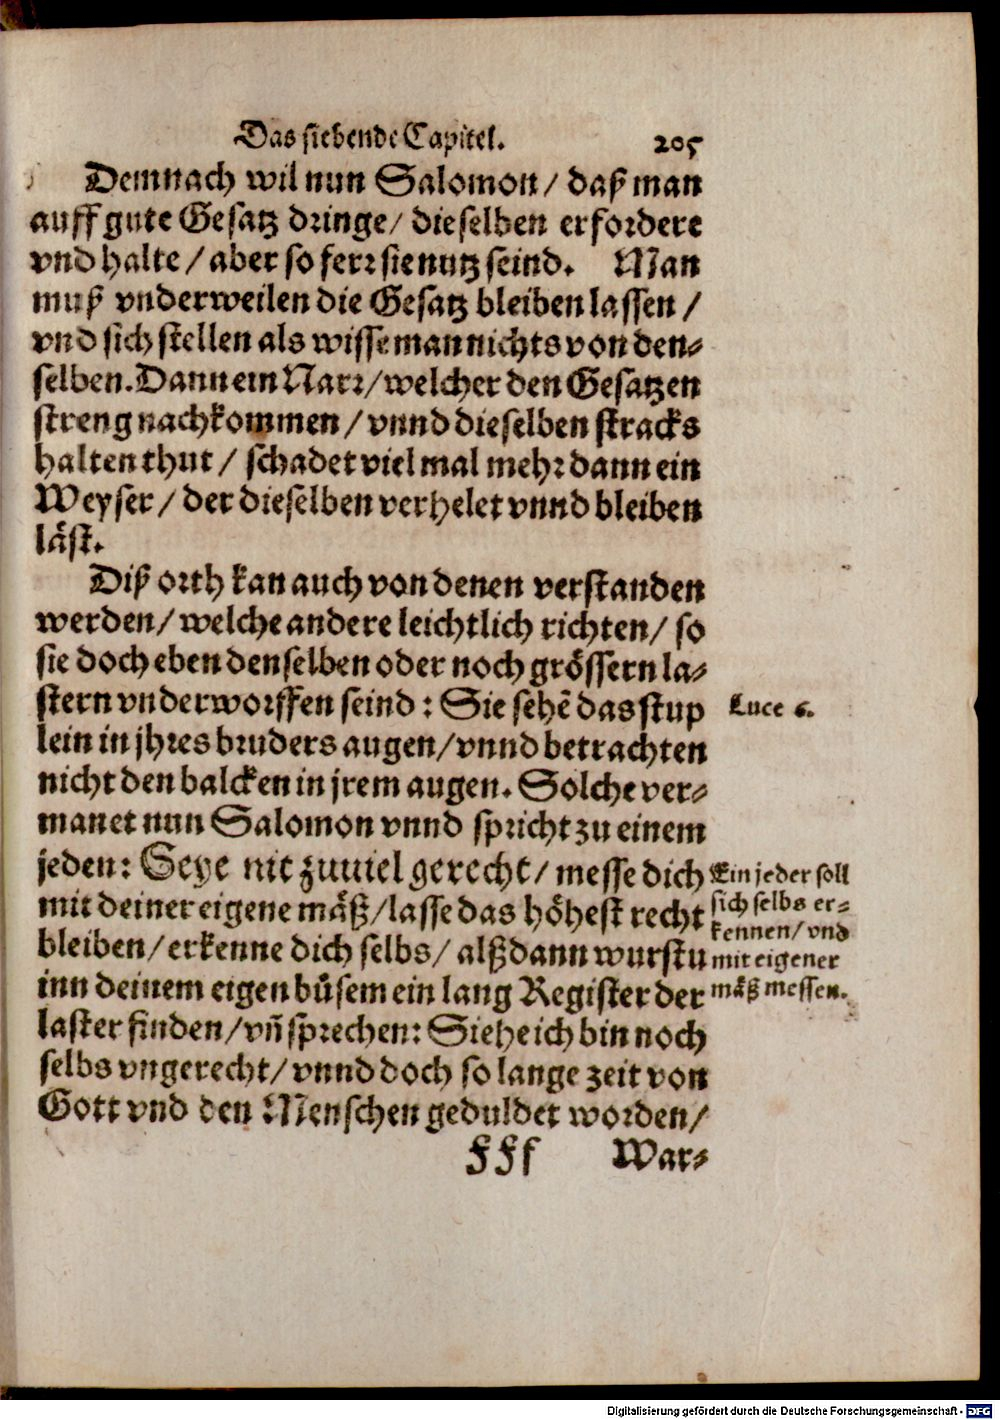 Das siebende Capitel. 205
Demnach wil nun Salomon / daß man
auff gute Gesatz dringe / dieselben erfordere
vnd halte / aber so ferr sie nutz seind. Man
muß vnderweilen die Gesatz bleiben lassen /
vnd sich stellen als wisse man nichts von den-
selben. Dann ein Narr / welcher den Gesatzen
streng nachkommen / vnnd dieselben stracks
halten thut / schadet viel mal mehr dann ein
Weyser / der dieselben verhelet vnnd bleiben
läst.
Diß orth kan auch von denen verstanden
werden / welche andere leichtlich richten / so
sie doch eben denselben oder noch grössern la-
stern vnderworffen seind : Sie sehẽ das stup
Luce 6.
lein in jhres bruders augen / vnnd betrachten
nicht den balcken in jrem augen. Solche ver-
manet nun Salomon vnnd spricht zu einem
jeden: Seye nit zuuiel gerecht / messe dich
mit deiner eigene mäß / lasse das höhest recht
bleiben / erkenne dich selbs / alßdann wurstu
inn deinem eigen bůsem ein lang Register der
laster finden / vñ sprechen: Siehe ich bin noch
selbs vngerecht / vnnd doch so lange zeit von
Gott vnd den Menschen geduldet worden /
Ein jeder soll
sich selbs er-
kennen / vnd
mit eigener
mäß messen.
FFf War-
Digitalisierung gefördert durch die Deutsche Forschungsgemeinschaft - DFG